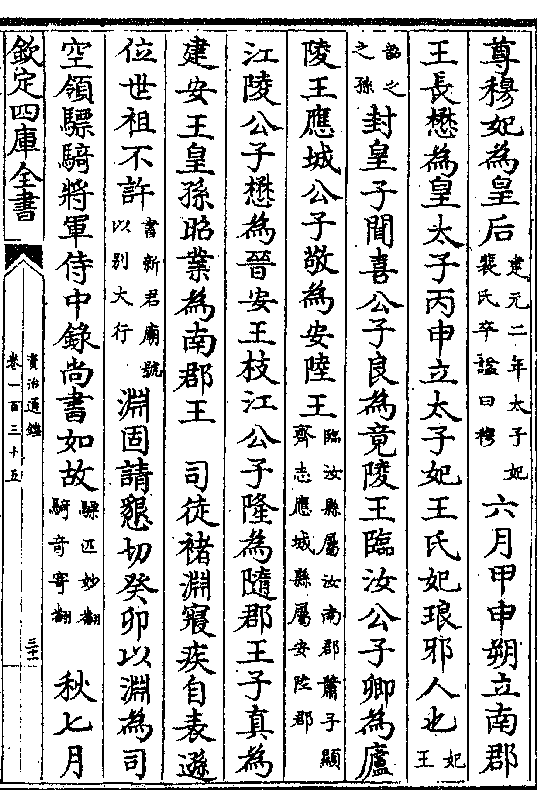 尊穆妃為皇后建元二年太子妃裴氏卒諡曰穆六月甲申朔立南郡
王長懋為皇太子丙申立太子妃王氏妃琅邪人也妃王
韶之之孫封皇子聞喜公子良為竟陵王臨汝公子卿為廬
陵王應城公子敬為安陸王臨汝縣屬汝南郡蕭子顯齊志應城縣屬安陸郡
江陵公子懋為晉安王枝江公子隆為隨郡王子真為
建安王皇孫昭業為南郡王　司徒褚淵寢疾自表遜
位世祖不許書新君廟號以别大行淵固請懇切癸卯以淵為司
空領驃騎將軍侍中錄尚書如故驃匹妙翻騎奇寄翻　秋七月
欽定四庫全書
資治通鑑
卷一百三十五
三十一